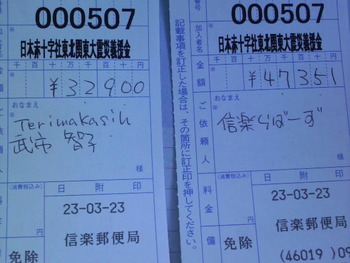 000507
日本赤十字社東北関東大震災義援金
千百十万千百十円
¥32900
おなまえ
Terimakasih
武市 智子
様
(消費税込み)
日附印
23-03-23
信楽郵便局
免除
記載事項を訂正した場合は、その箇所に訂正印を押してください。
000507
加入者名
日本赤十字社東北関東大震災義援金
金額
千百十万千百十円
¥47351
ご依頼人
おなまえ
信楽らばーず
様
料金
(消費税込み)
日附印
23-03-23
信楽郵便局
備
免除
(46019)